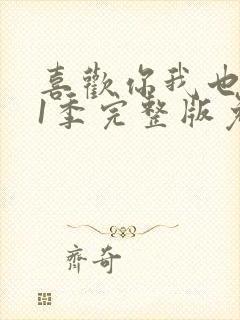 喜歡你我也
1季完整版
齊奇